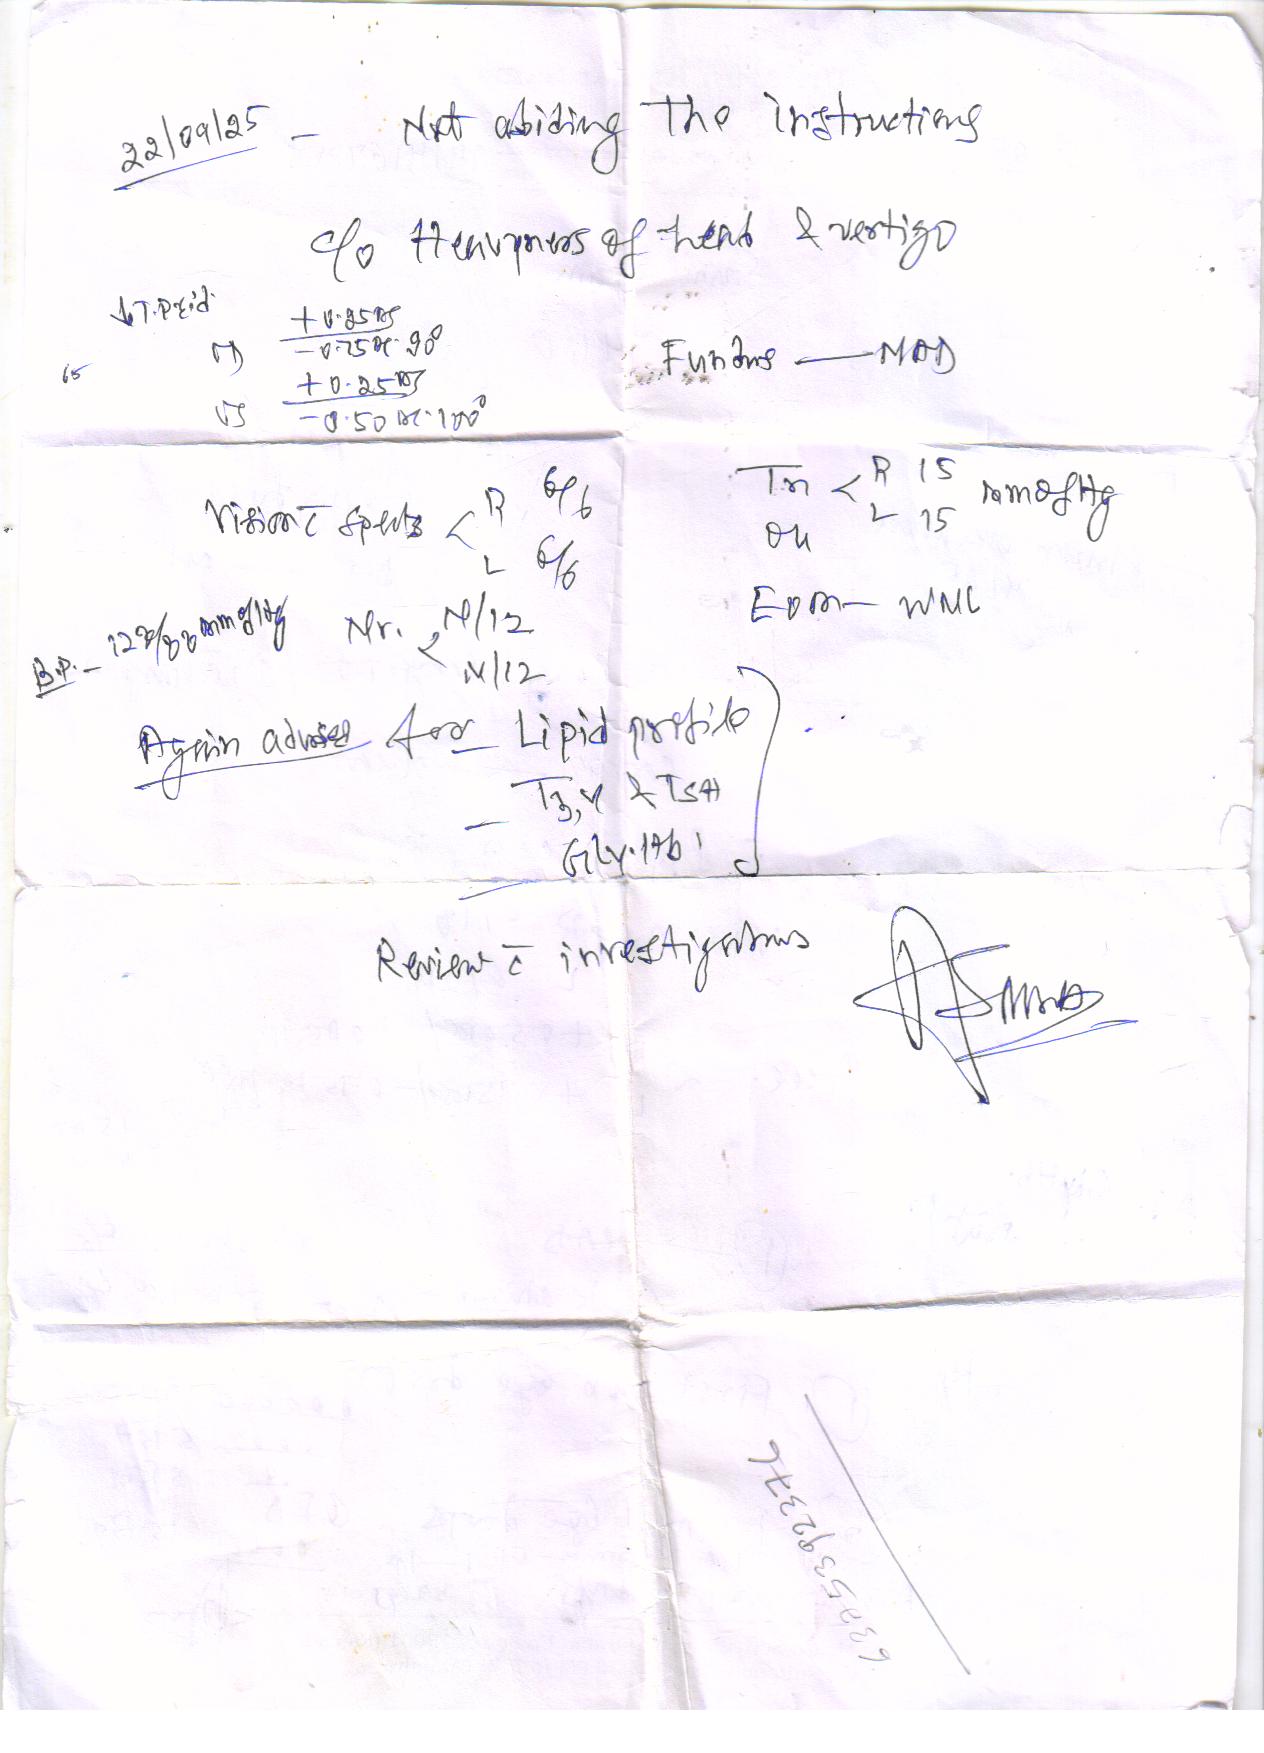 22/09/25 - Not abiding The instructions
c/o Heavyness of head & vertigo
↓T. Pxid.
OD +0.25 DS
-0.75 DC 90°
65
OS +0.25 DS
-0.50 DC 100°
Fundus — NAD
Vision c̄ spects < R 6/6
L 6/6
Tn < R 15
L 15 mmofHg
OU
EOM - WNL
B.P. - 128/88 mmofHg
Nr. < N/12
N/12
Again advised for - Lipid profile
- T3,4 & TSH
Gly. Hb
Review c̄ investigations
6325392376